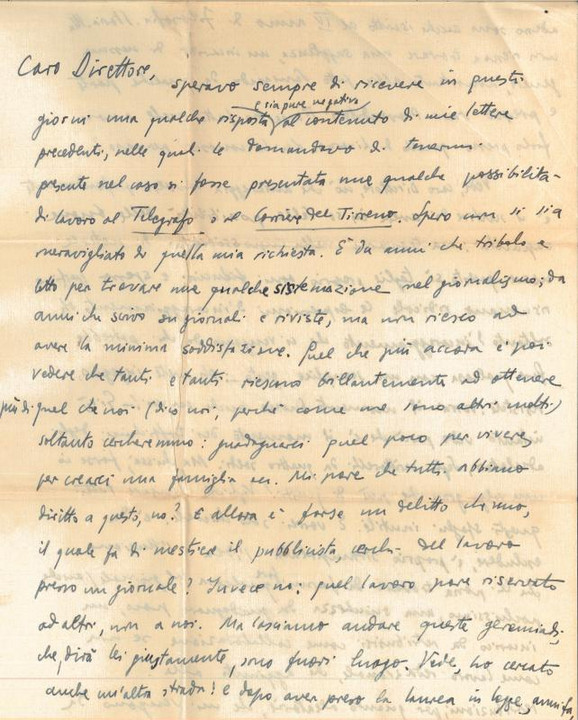 Caro Direttore,
speravo sempre di ricevere in questi
e sia pure negativa
giorni una qualche risposta al contenuto di mie lettere
precedenti, nelle quali le domandavo di tenermi
presente nel caso si fosse presentata una qualche possibilità
di lavoro al Telegrafo o al Corriere del Tirreno. Spero non si sia
meravigliato di quella mia richiesta. È da anni che tribolo e
lotto per trovare una qualche sistemazione nel giornalismo; da
anni che scrivo su giornali e riviste, ma non riesco ad
avere la minima soddisfazione. Quel che più accora è poi
vedere che tanti e tanti riescono brillantemente ad ottenere
più di quel che noi (dico noi, perché come me sono altri molti)
soltanto cercheremmo: guadagnarci quel poco per vivere,
per crearci una famiglia ecc. Mi pare che tutti abbiamo
diritto a questo, no? E allora è forse un delitto che uno,
il quale fa di mestiere il pubblicista, cerchi del lavoro
presso un giornale? Invece no: quel lavoro pare riservato
ad altri, non a noi. Ma lasciamo andare queste geremiadi,
che, dirà lei giustamente, sono fuori luogo. Vede, ho cercato
anche un'altra strada: e dopo aver preso la laurea in legge, anni fa